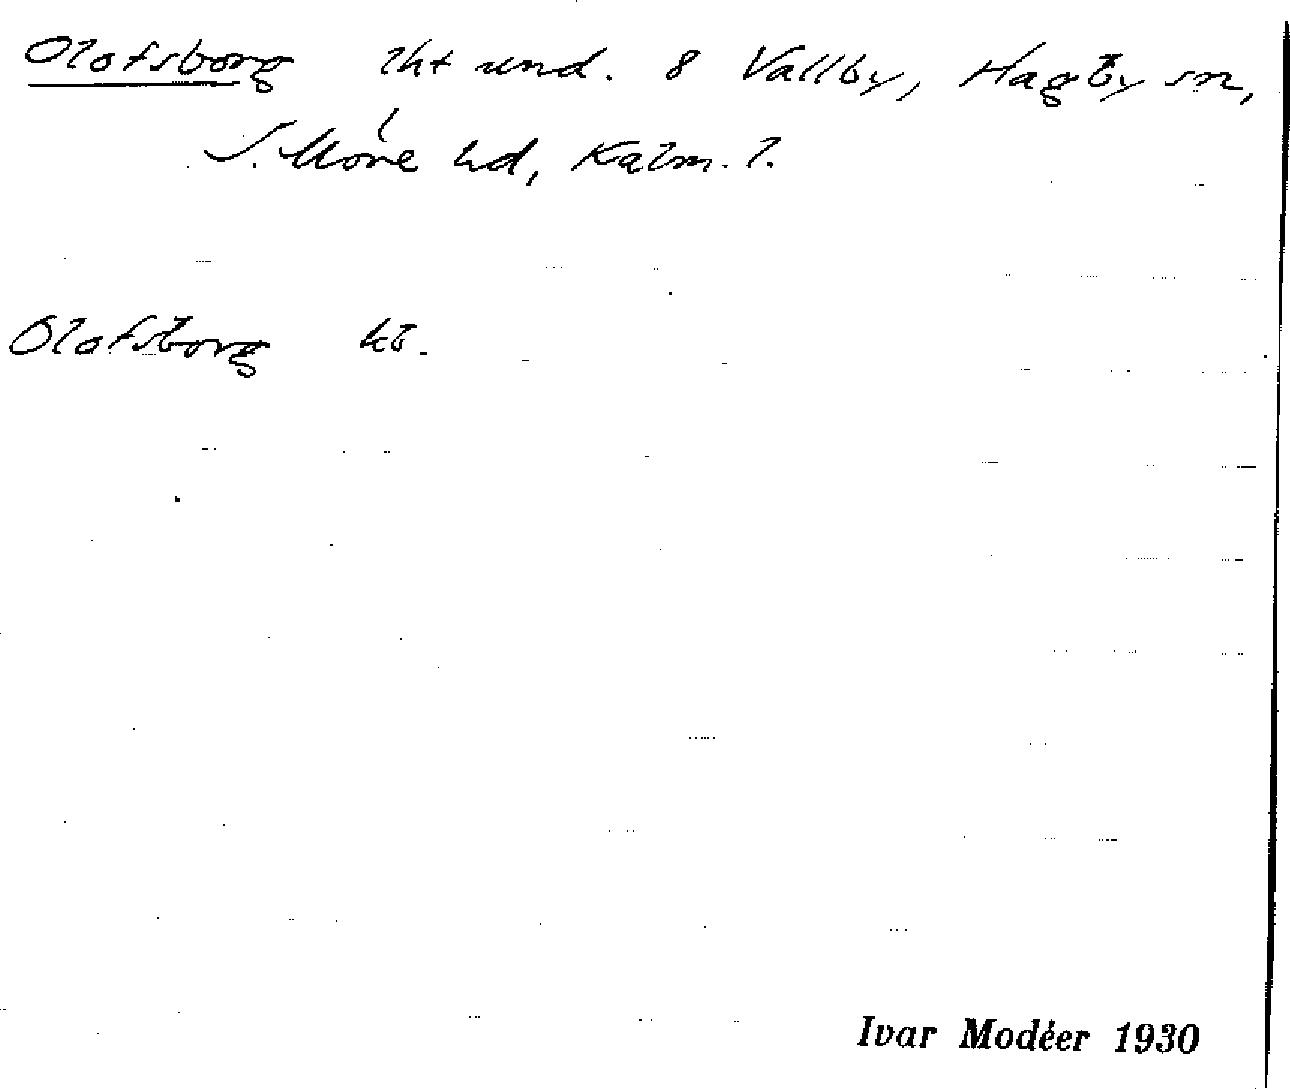 Olofsborg lht und. 8 Vallby, Hagby sn,
S. Möre hd, Kalm. l.
Olofsborg kö.
Ivar Modéer 1930